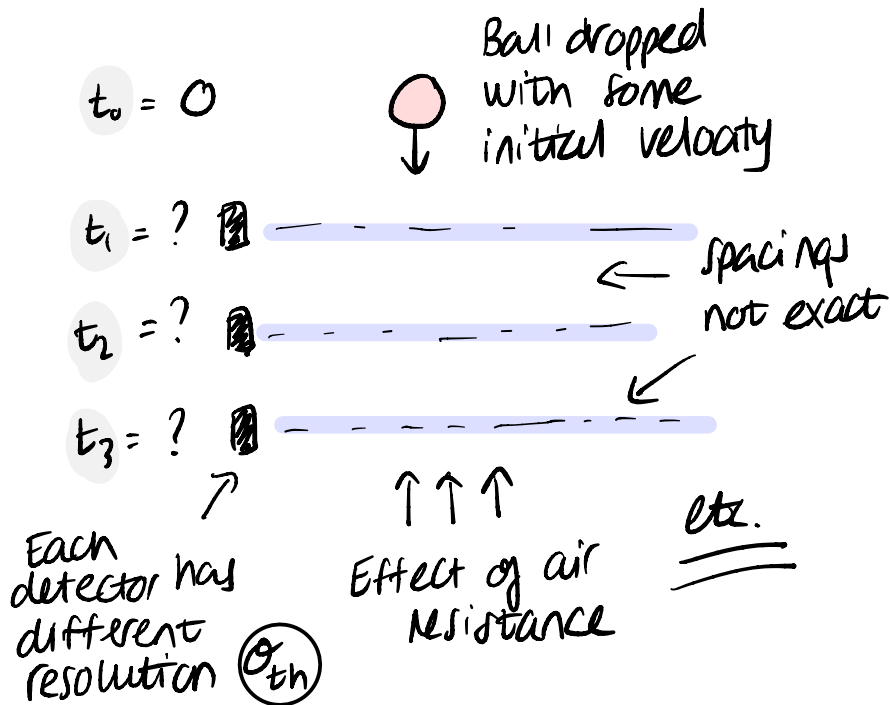 t₀ = 0
Ball dropped
with some
initial velocity
t₁ = ?
t₂ = ?
t₃ = ?
spacings
not exact
Each
detector has
different
resolution σth
Effect of air
resistance
etc.